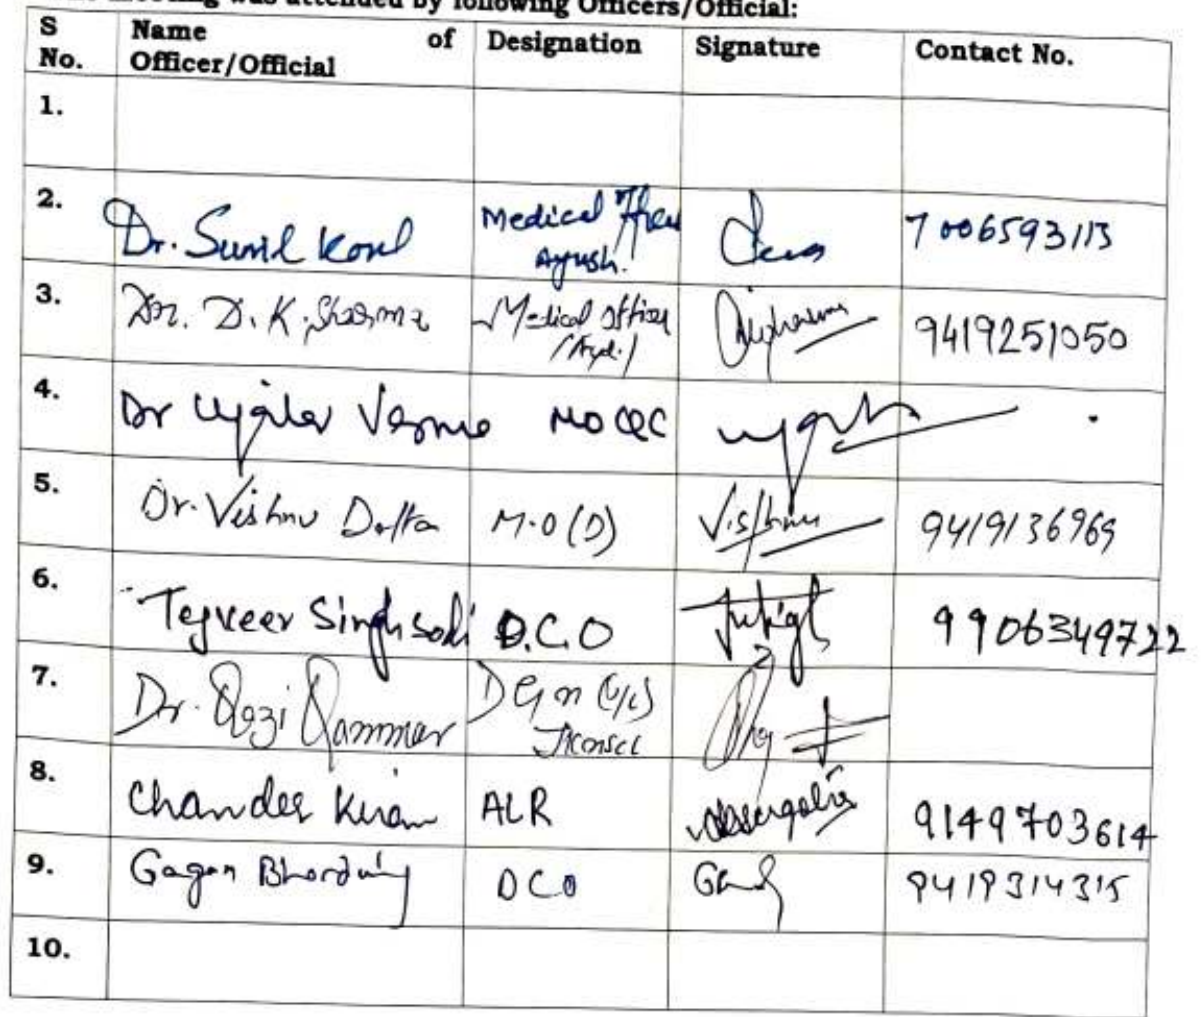 meeting was attended by following Officers/Official:
S No. Name of Officer/Official Designation Signature Contact No.
1.
2. Dr. Sunil Koul Medical Ayush. 7006593113
3. Dr. D. K. Sharma Medical Officer 9419251050
4. Dr Verma MO
5. Dr. Vishnu Datta M.O (D) Vishnu 9419136969
6. Tejveer Singh D.C.O 9906349722
7. Dr. Qazi Qammar DGM
8. Chander Kiran ALR 9149703614
9. Gagan DCO 9419314315
10.